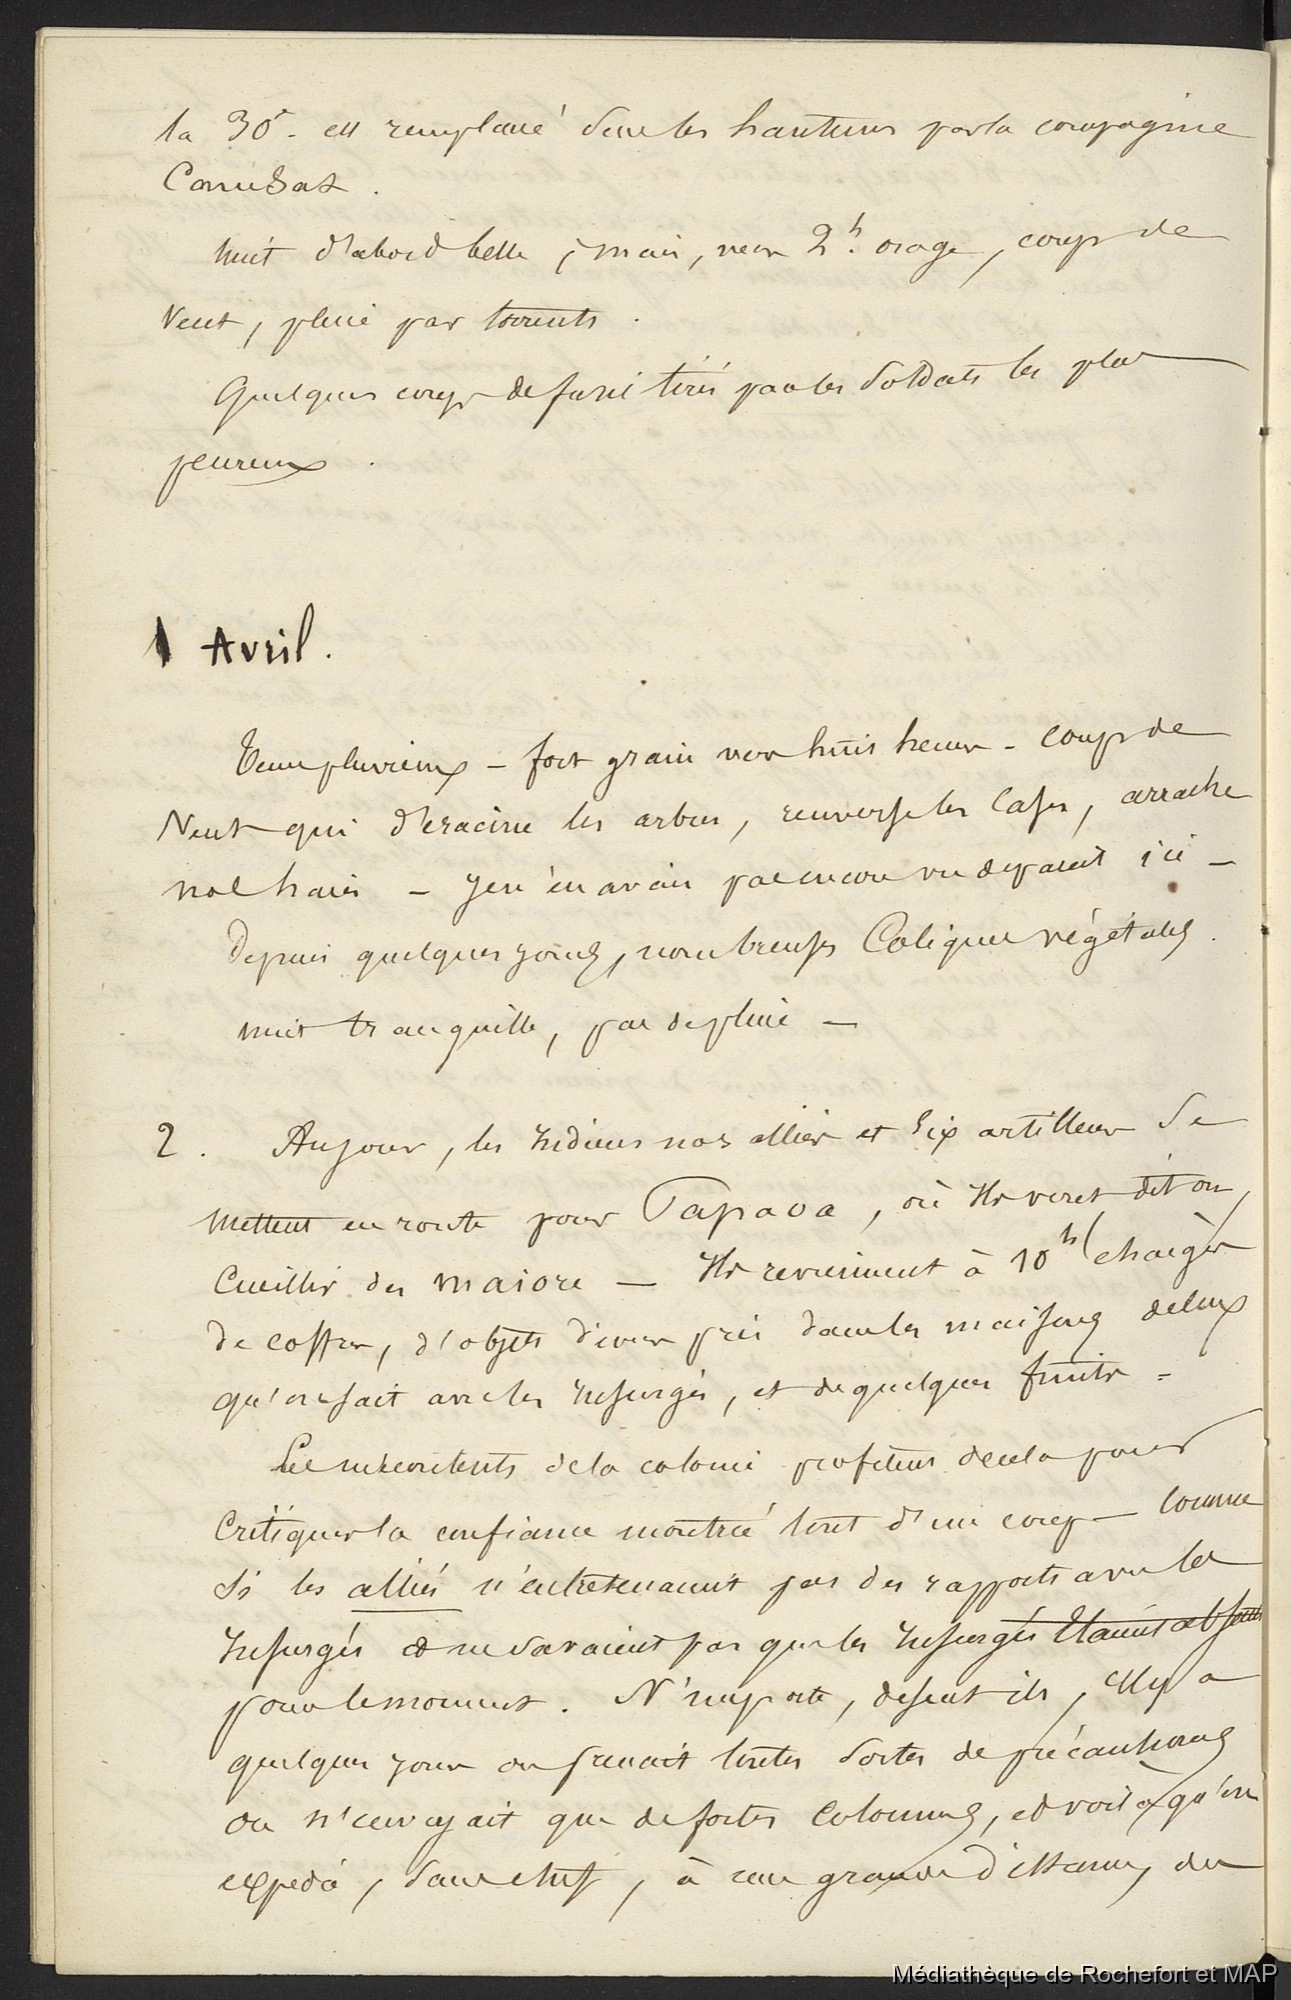 la 30e est remplacé sur les hauteurs par la compagnie
Canisat.
nuit d'abord belle ; mais, vers 2h. orage, coups de
vent, pluie par torrents.
Quelques coups de fusil tirés par les soldats les plus
peureux.
1 Avril.
Temps pluvieux - fort grain vers huit heures - Coups de
vent qui déracine les arbres, renverse les cases, arrache
nos haies - je n'en avais pas encore vu de pareil ici -
Depuis quelques jours, nombreuses Coliques végétales.
nuit tranquille, pas de pluie -
2. Au jour, les Indiens nos alliés et six artilleurs se
mettent en route pour Papaoa, où ils vont dit on,
cueillir du maiore - Ils reviennent à 10h chargés
de coffres, d'objets divers pris dans les maisons de ceux
qu'on sait avec les insurgés, et de quelques fruits -
Les mécontents de la colonie profitent de cela pour
critiquer la confiance montrée tout d'un coup - Comme
si les alliés n'entretenaient pas des rapports avec les
insurgés & ne savaient pas que les insurgés étaient absents
pour le moment. N'importe, disent ils, il y a
quelques jours on prenait toutes sortes de précautions
on n'envoyait que de fortes colonnes, et voilà qu'on
expédie, sans chef, à une grande distance, des
Médiathèque de Rochefort et MAP